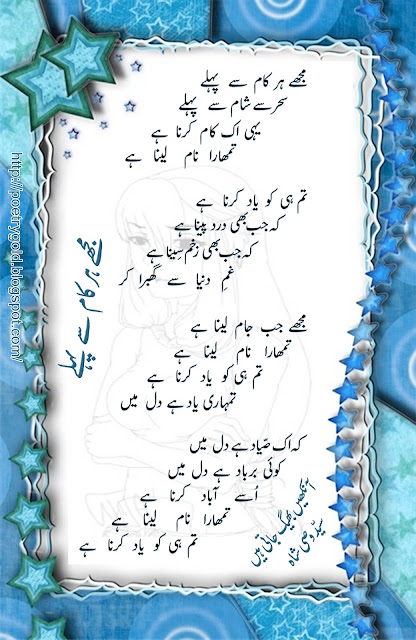 مجھے ہر کام سے پہلے
سحر سے شام سے پہلے
یہی اک کام کرنا ہے
تمھارا نام لینا ہے
تم ہی کو یاد کرنا ہے
کہ جب بھی درد پینا ہے
کہ جب بھی زخم سینا ہے
غمِ دنیا سے گھبرا کر
مجھے جب جام لینا ہے
تمھارا نام لینا ہے
تم ہی کو یاد کرنا ہے
تمہاری یاد ہے دل میں
کہ اک صیّاد ہے دل میں
کوئی برباد ہے دل میں
اُسے آباد کرنا ہے
تمھارا نام لینا ہے
تم ہی کو یاد کرنا ہے
مجھے ہر کام سے پہلے
آنکھیں بھیگ جاتی ہیں
سیّد وصی شاہ
http://poetrygold.blogspot.com/